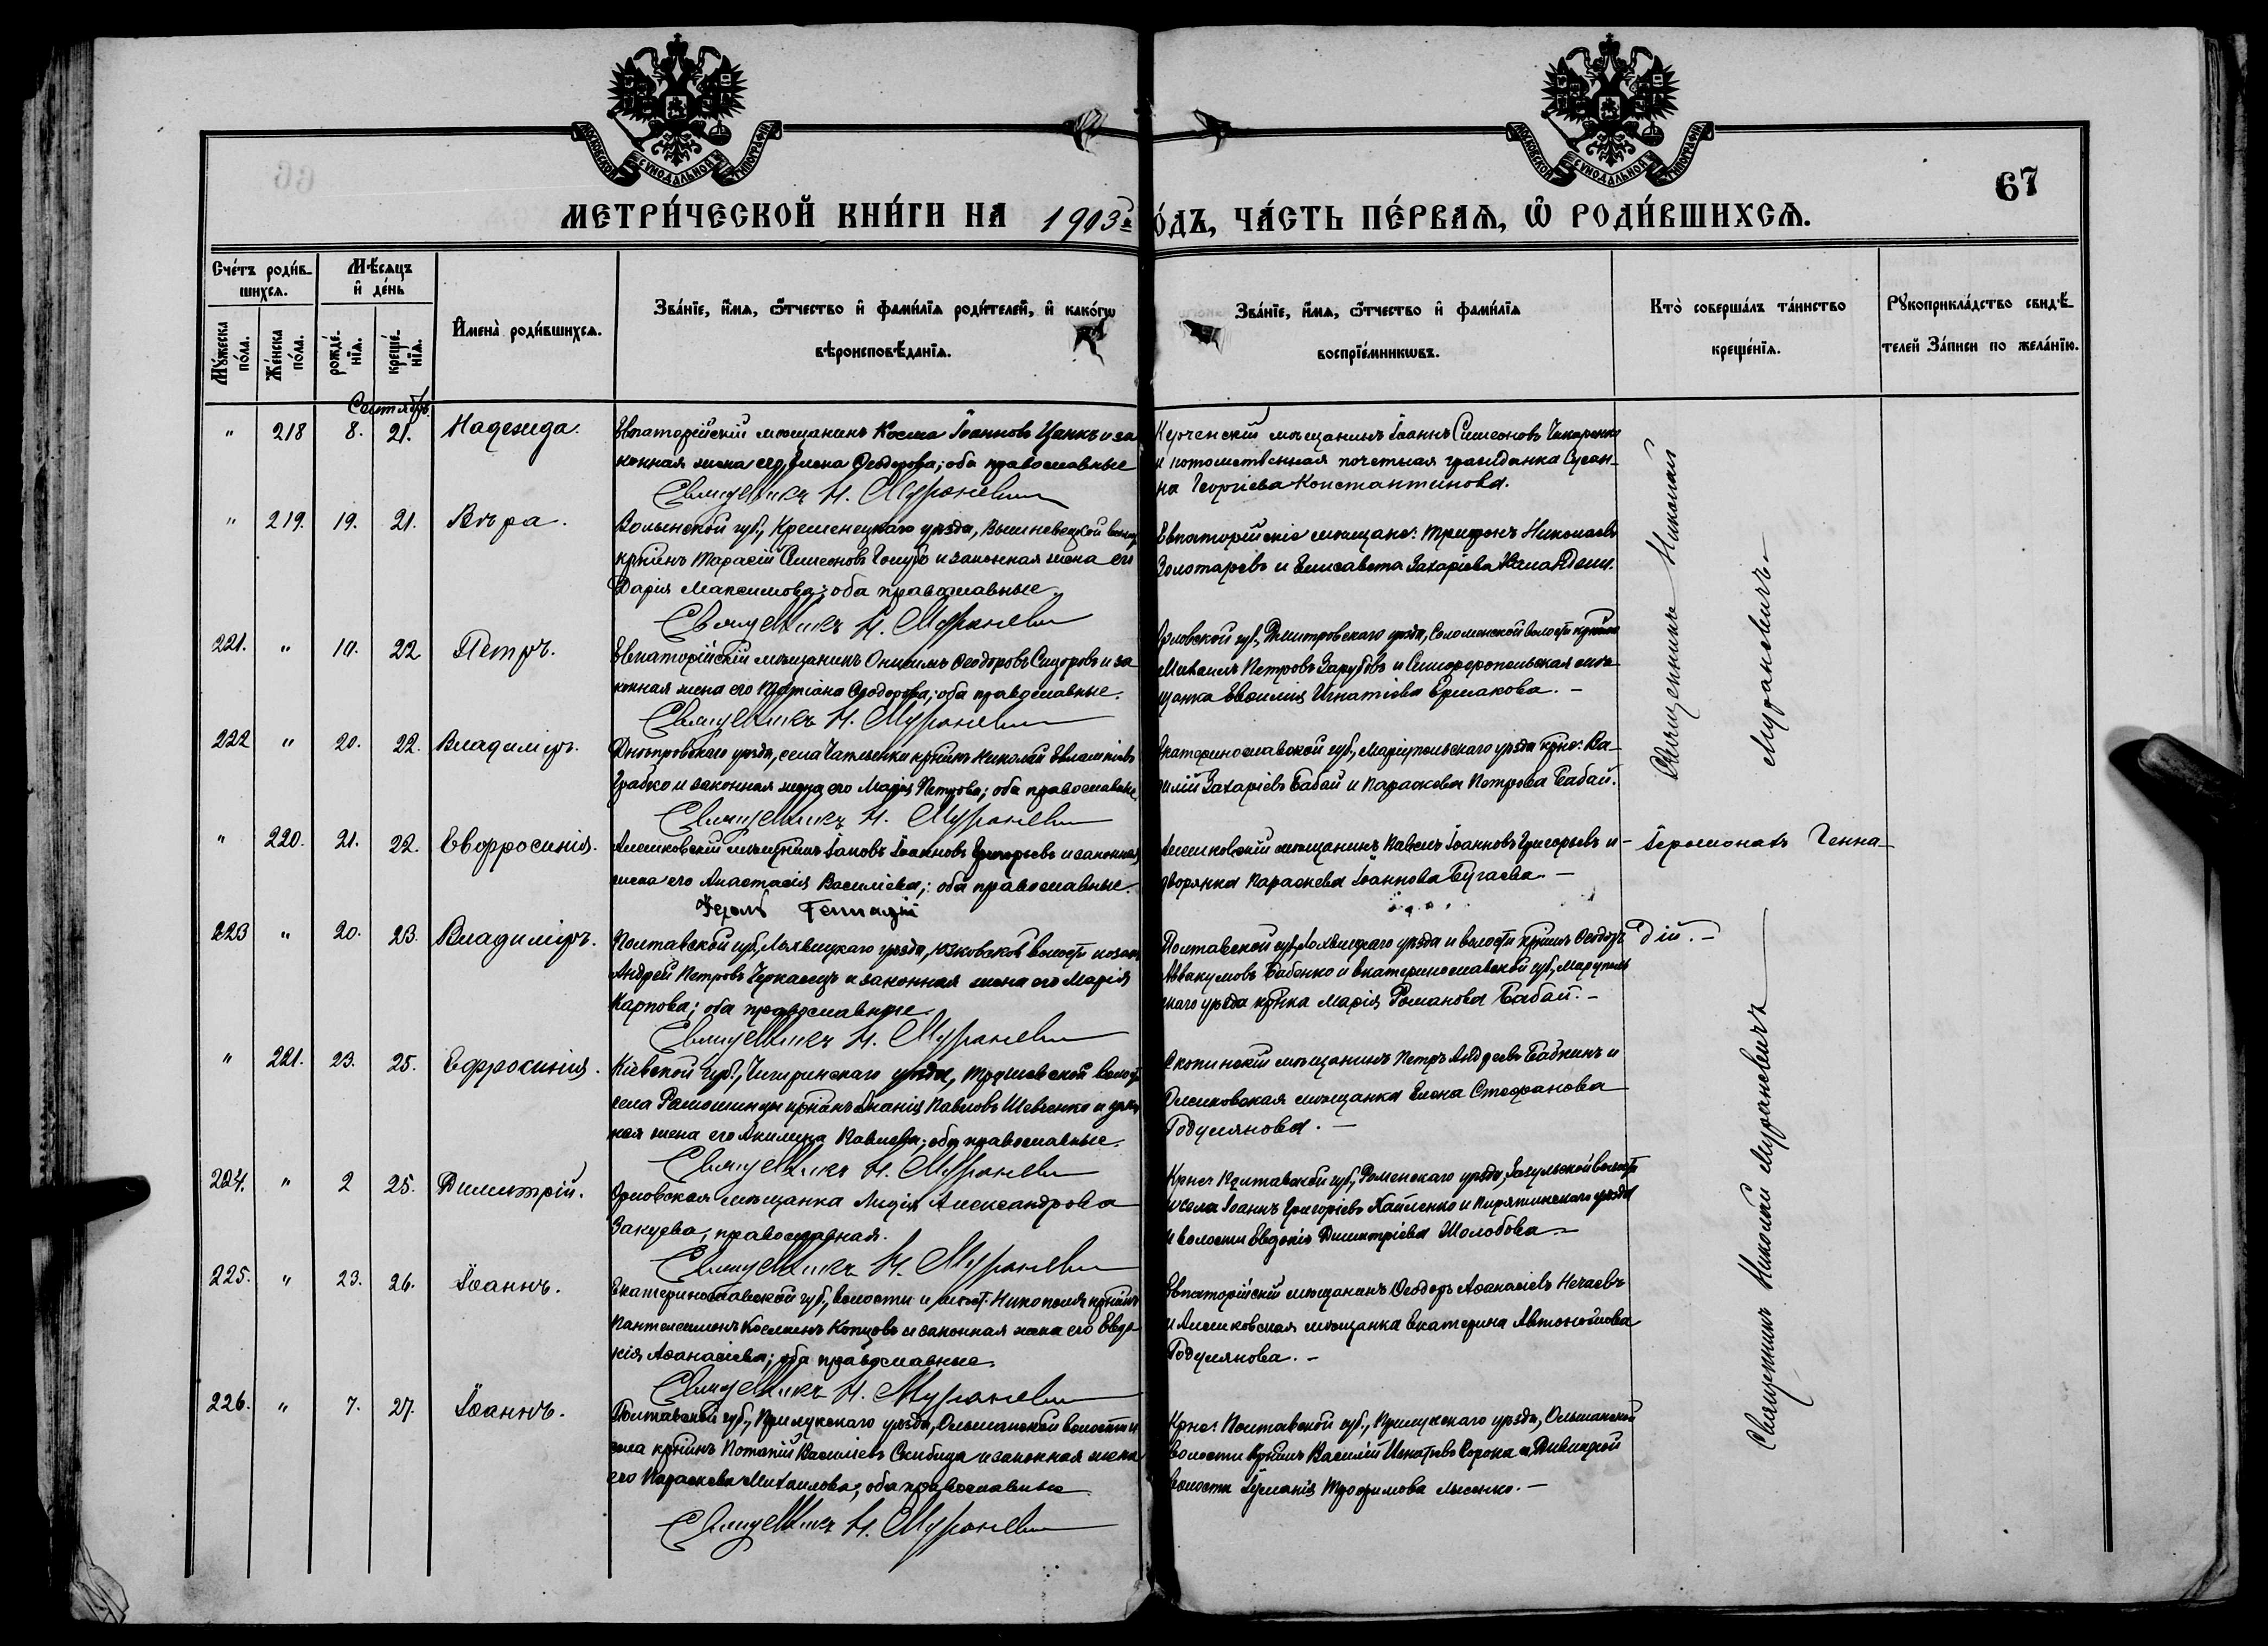 МОСКОВСКОЙ СѴНОДАЛЬНОЙ ТИПОГРАФІИ
МОСКОВСКОЙ СѴНОДАЛЬНОЙ ТИПОГРАФІИ
67
МЕТРИ́ЧЕСКОЙ КНИ́ГИ НА 1903 го́дъ, ЧА́СТЬ ПЕ́РВАѦ, Ѽ РОДИ́ВШИХСѦ.
Сче́тъ роди́вшихсѧ.
Мѣ́сѧцъ и҆ де́нь
И҆мена̀ роди́вшихсѧ.
Зва́нїе, и҆́мѧ, ѻ҆́тчество и҆ фами́лїѧ роди́телей, и҆ како́гѡ
вѣроисповѣ́данїѧ.
Зва́нїе, и҆́мѧ, ѻ҆́тчество и҆ фами́лїѧ
воспрїе́мникѡвъ.
Кто̀ соверша́лъ та́инство
креще́нїѧ.
Рꙋкоприкла́дство свидѣ́телей за́писи по жела́нїю.
Мꙋ́жеска по́ла.
Же́нска по́ла.
рожде́нїѧ.
креще́нїѧ.
Сентябрь.
" 218 8. 21. Надежда.
Евпаторійскій мѣщанинъ Косма Іоанновъ Цанкъ и за
конная жена его, Елена Ѳеодорова; оба православные
Священникъ Н. Мурановичъ
Керченскій мѣщанинъ Іоаннъ Симеоновъ Чикаренко
и потомственная почетная гражданка Сусан-
на Георгіева Константинова.
" 219. 19. 21. Вѣра.
Волынской губ., Кременецкаго уѣзда, Вишневецкой волос
кр̃нинъ Тарасій Симеоновъ Голубъ и законная жена его
Дарія Максимова; оба православные.
Священникъ Н. Мурановичъ
Евпаторійскіе мѣщане: Трифонъ Николаевъ
Золотаревъ и Елисавета Захаріева
221. " 19. 22 Петръ.
Евпаторійскій мѣщанинъ Онисимъ Ѳеодоровъ Сидоровъ и за
конная жена его Татіана Ѳеодорова; оба православные.
Священникъ Н. Мурановичъ
Орловской губ., Дмитровскаго уѣзда, Соломинской волости кр̃нинъ
Михаилъ Петровъ Зарубовъ и Симферопольская мѣ-
щанка Евѳимія Игнатіева Ермакова. -
222 " 20. 22. Владиміръ.
Днѣпровскаго уѣзда, села Чаплынки кр̃нинъ Николай
Грабко и законная жена его Марія Петрова; оба православные
Священникъ Н. Мурановичъ
Екатеринославской губ., Маріупольскаго уѣзда крне: Ва-
силій Захаріевъ Бабай и Параскева Петрова Бабай.
Священникъ Николай
Мурановичъ -
" 220. 21. 22. Евфросинія.
Алешковскій мѣщанинъ Іаковъ Іоанновъ Григорьевъ и законная
жена его Анастасія Василіева; оба православные.
Іером Геннадій
Алешковскій мѣщанинъ Павелъ Іоанновъ Григорьевъ и -
дворянка Параскева Іоаннова Бугаева. -
Іеромонахъ Генна-
дій. -
223 " 20. 23. Владиміръ.
Полтавской губ., Лохвицкаго уѣзда, Юзковской волости козак
Андрей Петровъ Черкасецъ и законная жена его Марія
Карпова; оба православные.
Священникъ Н. Мурановичъ
Полтавской губ., Лохвицкаго уѣзда и волости кр̃нинъ Ѳеодоръ
Аввакумовъ Бабенко и Екатеринославской губ., Маріуполь
скаго уѣзда кр̃нка Марія Романова Бабай. -
" 221. 23. 25. Ефросинія.
Кіевской губ., Чигиринскаго уѣзда, Трушовской волос
села кр̃нинъ Ананія Павловъ Шевченко и закон
ная жена его Акилина Павлова; оба православные.
Священникъ Н. Мурановичъ
Скопинскій мѣщанинъ Петръ Андреевъ Бабкинъ и
Алешковская мѣщанка Елена Стефанова
Годулянова. -
224. " 2 25. Димитрій.
Орловская мѣщанка Лидія Александрова
Зануева, православная.
Священникъ Н. Мурановичъ
Крне: Полтавской губ., Роменскаго уѣзда, волости
и села Іоаннъ Григоріевъ и Пирятинскаго уѣзда
и волости Евдокія Димитріева Шолобова. -
225. " 23. 26. Іоаннъ.
Екатеринославской губ., волости и мѣст. Никополя кр̃нинъ
Пантелеимонъ Косминъ Копцовъ и законная жена его Евдо
кія Аѳанасіева; оба православные.
Священникъ Н. Мурановичъ
Евпаторійскій мѣщанинъ Ѳеодоръ Аѳанасіевъ Нечаевъ
и Алешковская мѣщанка Екатерина Автономова
Годулянова. -
226. " 7. 27. Іоаннъ.
Полтавской губ., Прилукскаго уѣзда, Ольшанской волости и
села кр̃нинъ Потапій Василіевъ Скибида и законная жена
его Параскева Михаилова; оба православные.
Священникъ Н. Мурановичъ
Крне: Полтавской губ., Прилукскаго уѣзда, Ольшанской
волости кр̃нинъ Василій Игнатьевъ Сорока и
волости Іуліанія Трофимова Лысенко. -
Священникъ Николай Мурановичъ